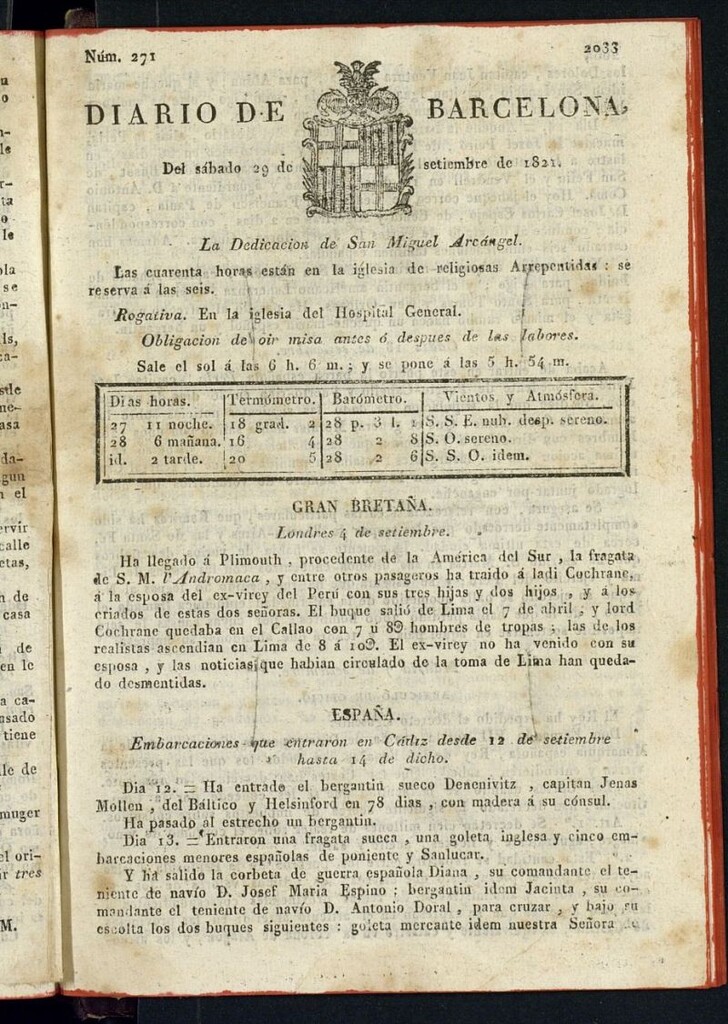 Núm. 271
2033
DIARIO DE BARCELONA,
Del sábado 29 de setiembre de 1821.
La Dedicacion de San Miguel Arcángel.
Las cuarenta horas están en la iglesia de religiosas Arrepentidas : se
reserva á las seis.
Rogativa. En la iglesia del Hospital General.
Obligacion de oir misa antes ó despues de las labores.
Sale el sol á las 6 h. 6 m.; y se pone á las 5 h. 54 m.
Dias horas. Termómetro. Barómetro. Vientos y Atmósfera.
27 11 noche. 18 grad. 2 28 p. 3 l. 1 S. S. E. nub. desp. sereno.
28 6 mañana. 16 4 28 2 8 S. O. sereno.
id. 2 tarde. 20 5 28 2 6 S. S. O. idem.
GRAN BRETAÑA.
Londres 4 de setiembre.
Ha llegado á Plimouth , procedente de la América del Sur , la fragata
de S. M. l'Andromaca , y entre otros pasageros ha traido á ladi Cochrane,
á la esposa del ex-virey del Perú con sus tres hijas y dos hijos , y á los
criados de estas dos señoras. El buque salió de Lima el 7 de abril ; y lord
Cochrane quedaba en el Callao con 7 ú 8Ə hombres de tropas ; las de los
realistas ascendian en Lima de 8 á 10Ə. El ex-virey no ha venido con su
esposa , y las noticias que habian circulado de la toma de Lima han queda-
do desmentidas.
ESPAÑA.
Embarcaciones que entraron en Cádiz desde 12 de setiembre
hasta 14 de dicho.
Dia 12. = Ha entrado el bergantin sueco Denenivitz , capitan Jenas
Mollen , del Báltico y Helsinford en 78 dias , con madera á su cónsul.
Ha pasado al estrecho un bergantin.
Dia 13. = Entraron una fragata sueca , una goleta inglesa y cinco em-
barcaciones menores españolas de poniente y Sanlucar.
Y ha salido la corbeta de guerra española Diana , su comandante el te-
niente de navío D. Josef Maria Espino ; bergantin idem Jacinta , su co-
mandante el teniente de navío D. Antonio Doral , para cruzar , y bajo su
escolta los dos buques siguientes : goleta mercante idem nuestra Señora de